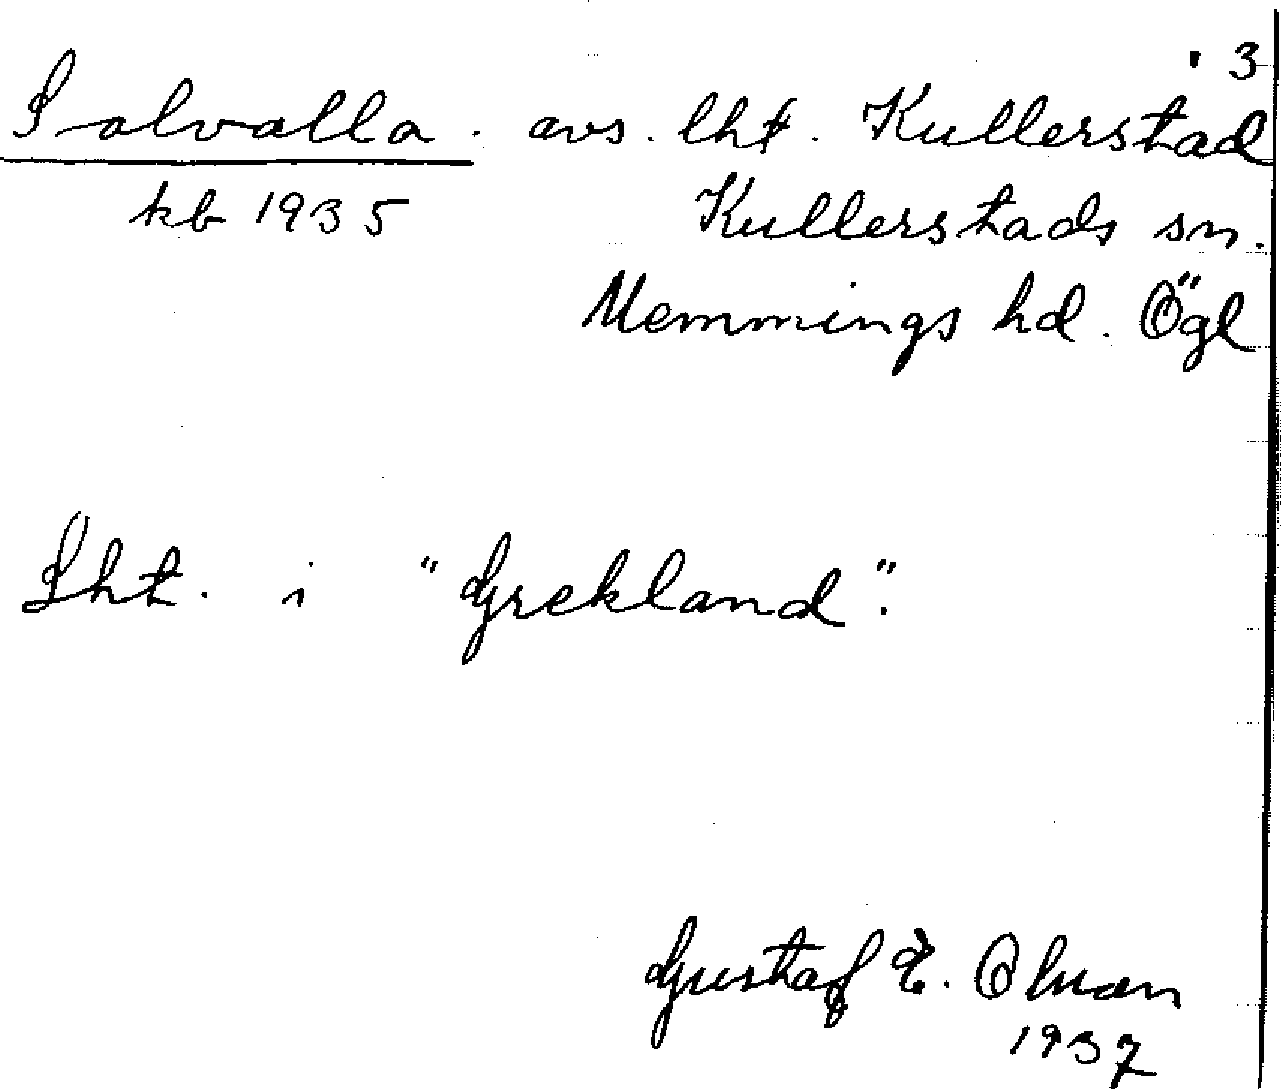 ' 3
Solvalla. avs. lht. Kullerstad
kb 1935 Kullerstads sn.
Memmings hd. Ögl
Lht. i "Grekland".
Gustaf E. Olman
1937